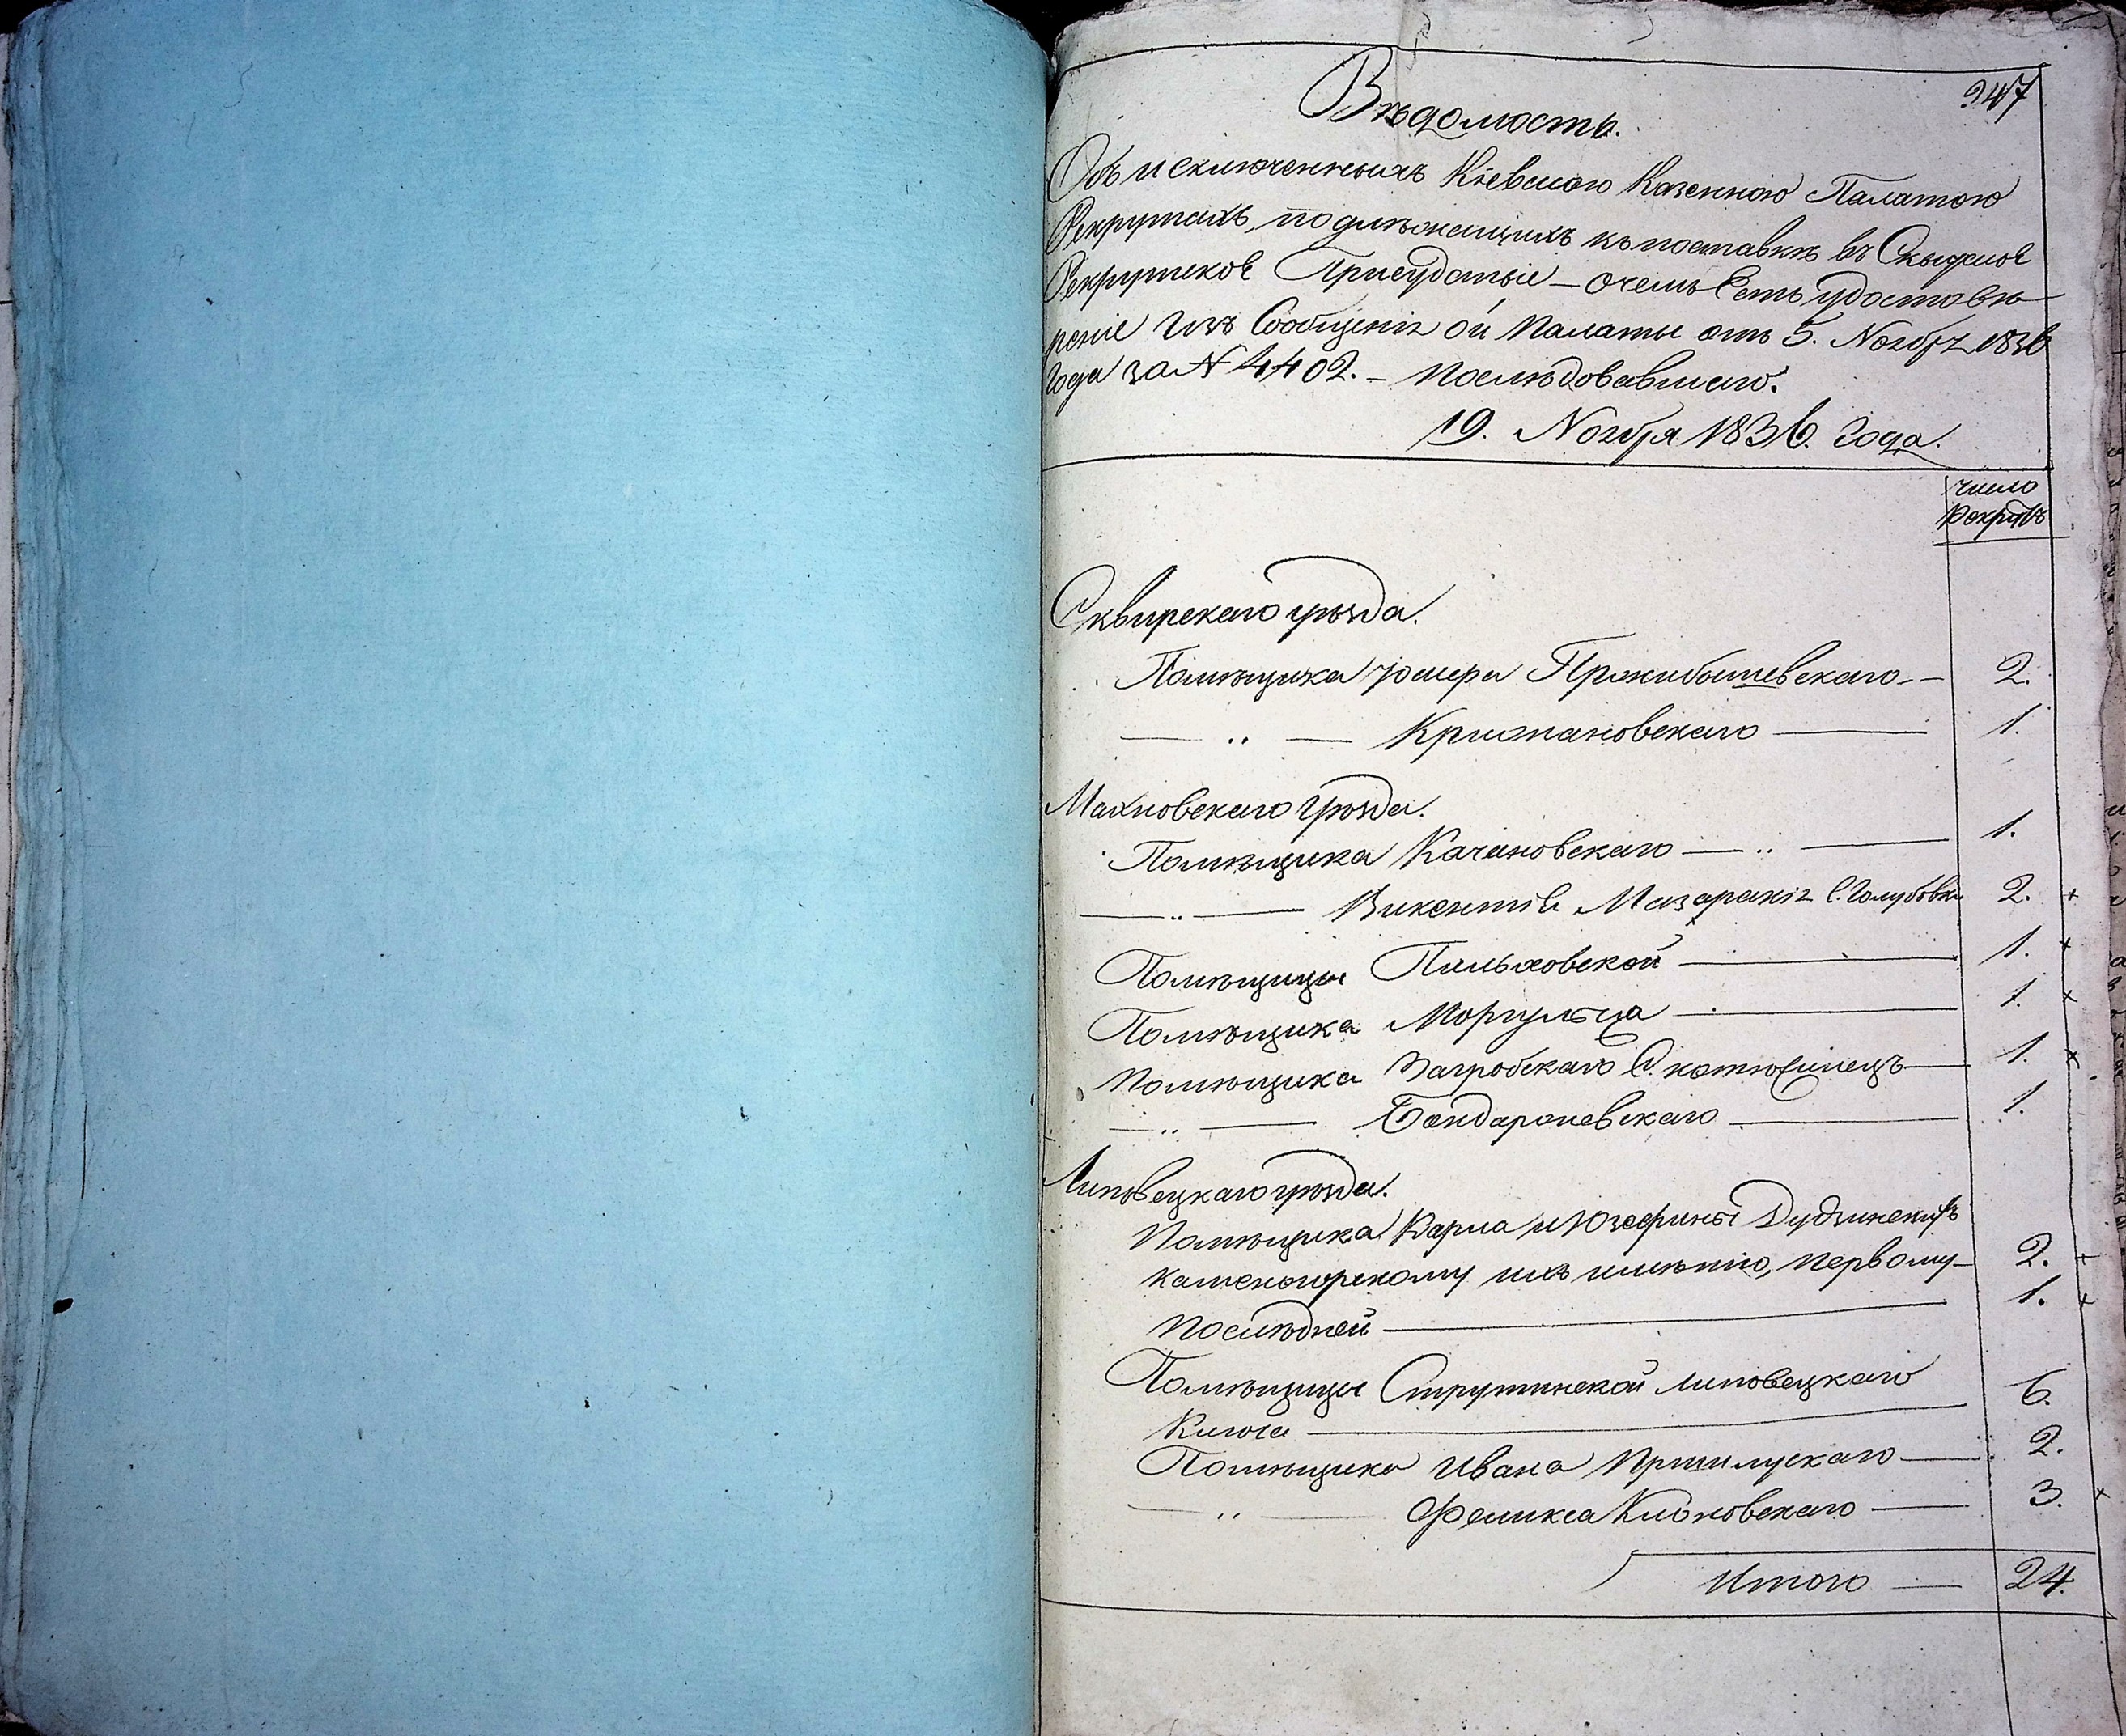 247
Вѣдомость.
Объ исключенныхъ Кіевскою Казенною Палатою
Рекрутахъ, подлѣжащихъ къ поставкѣ въ Сквирское
Рекрутское Присудствіе – о чемъ Есть удостовѣ-
реніе изъ Сообщенія ой Палаты отъ 5. Ноября 1836
Года за N 4402. – послѣдовавшаго.
19. Ноября 1836. Года.
число
Рекрутъ
Сквирскаго уѣзда.
Помѣщика Іосифа Пржибышевскаго – 2.
— „ — Кржижановскаго — 1.
Махновскаго уѣзда.
Помѣщика Качановскаго — „ — 1.
— „ — Викентія Мазаракія С. Голубовки 2. +
Помѣщицы Пильховской — 1. +
Помѣщика Моргульца — 1. +
Помѣщика Загробскаго С. Котюжинецъ — 1. +
— „ — Бондаровскаго — 1.
Липовецкаго уѣзда.
Помѣщика Карла и Юзефины Дудзинскихъ
Каменогорскому ихъ имѣнію, первому – 2. +
Последней — 1. +
Помѣщицы Струтинской Липовецкаго
Ключа — 6.
Помѣщика Ивана Пршилускаго — 2.
— „ — Феликса Кліоновскаго — 3. +
Итого — 24.